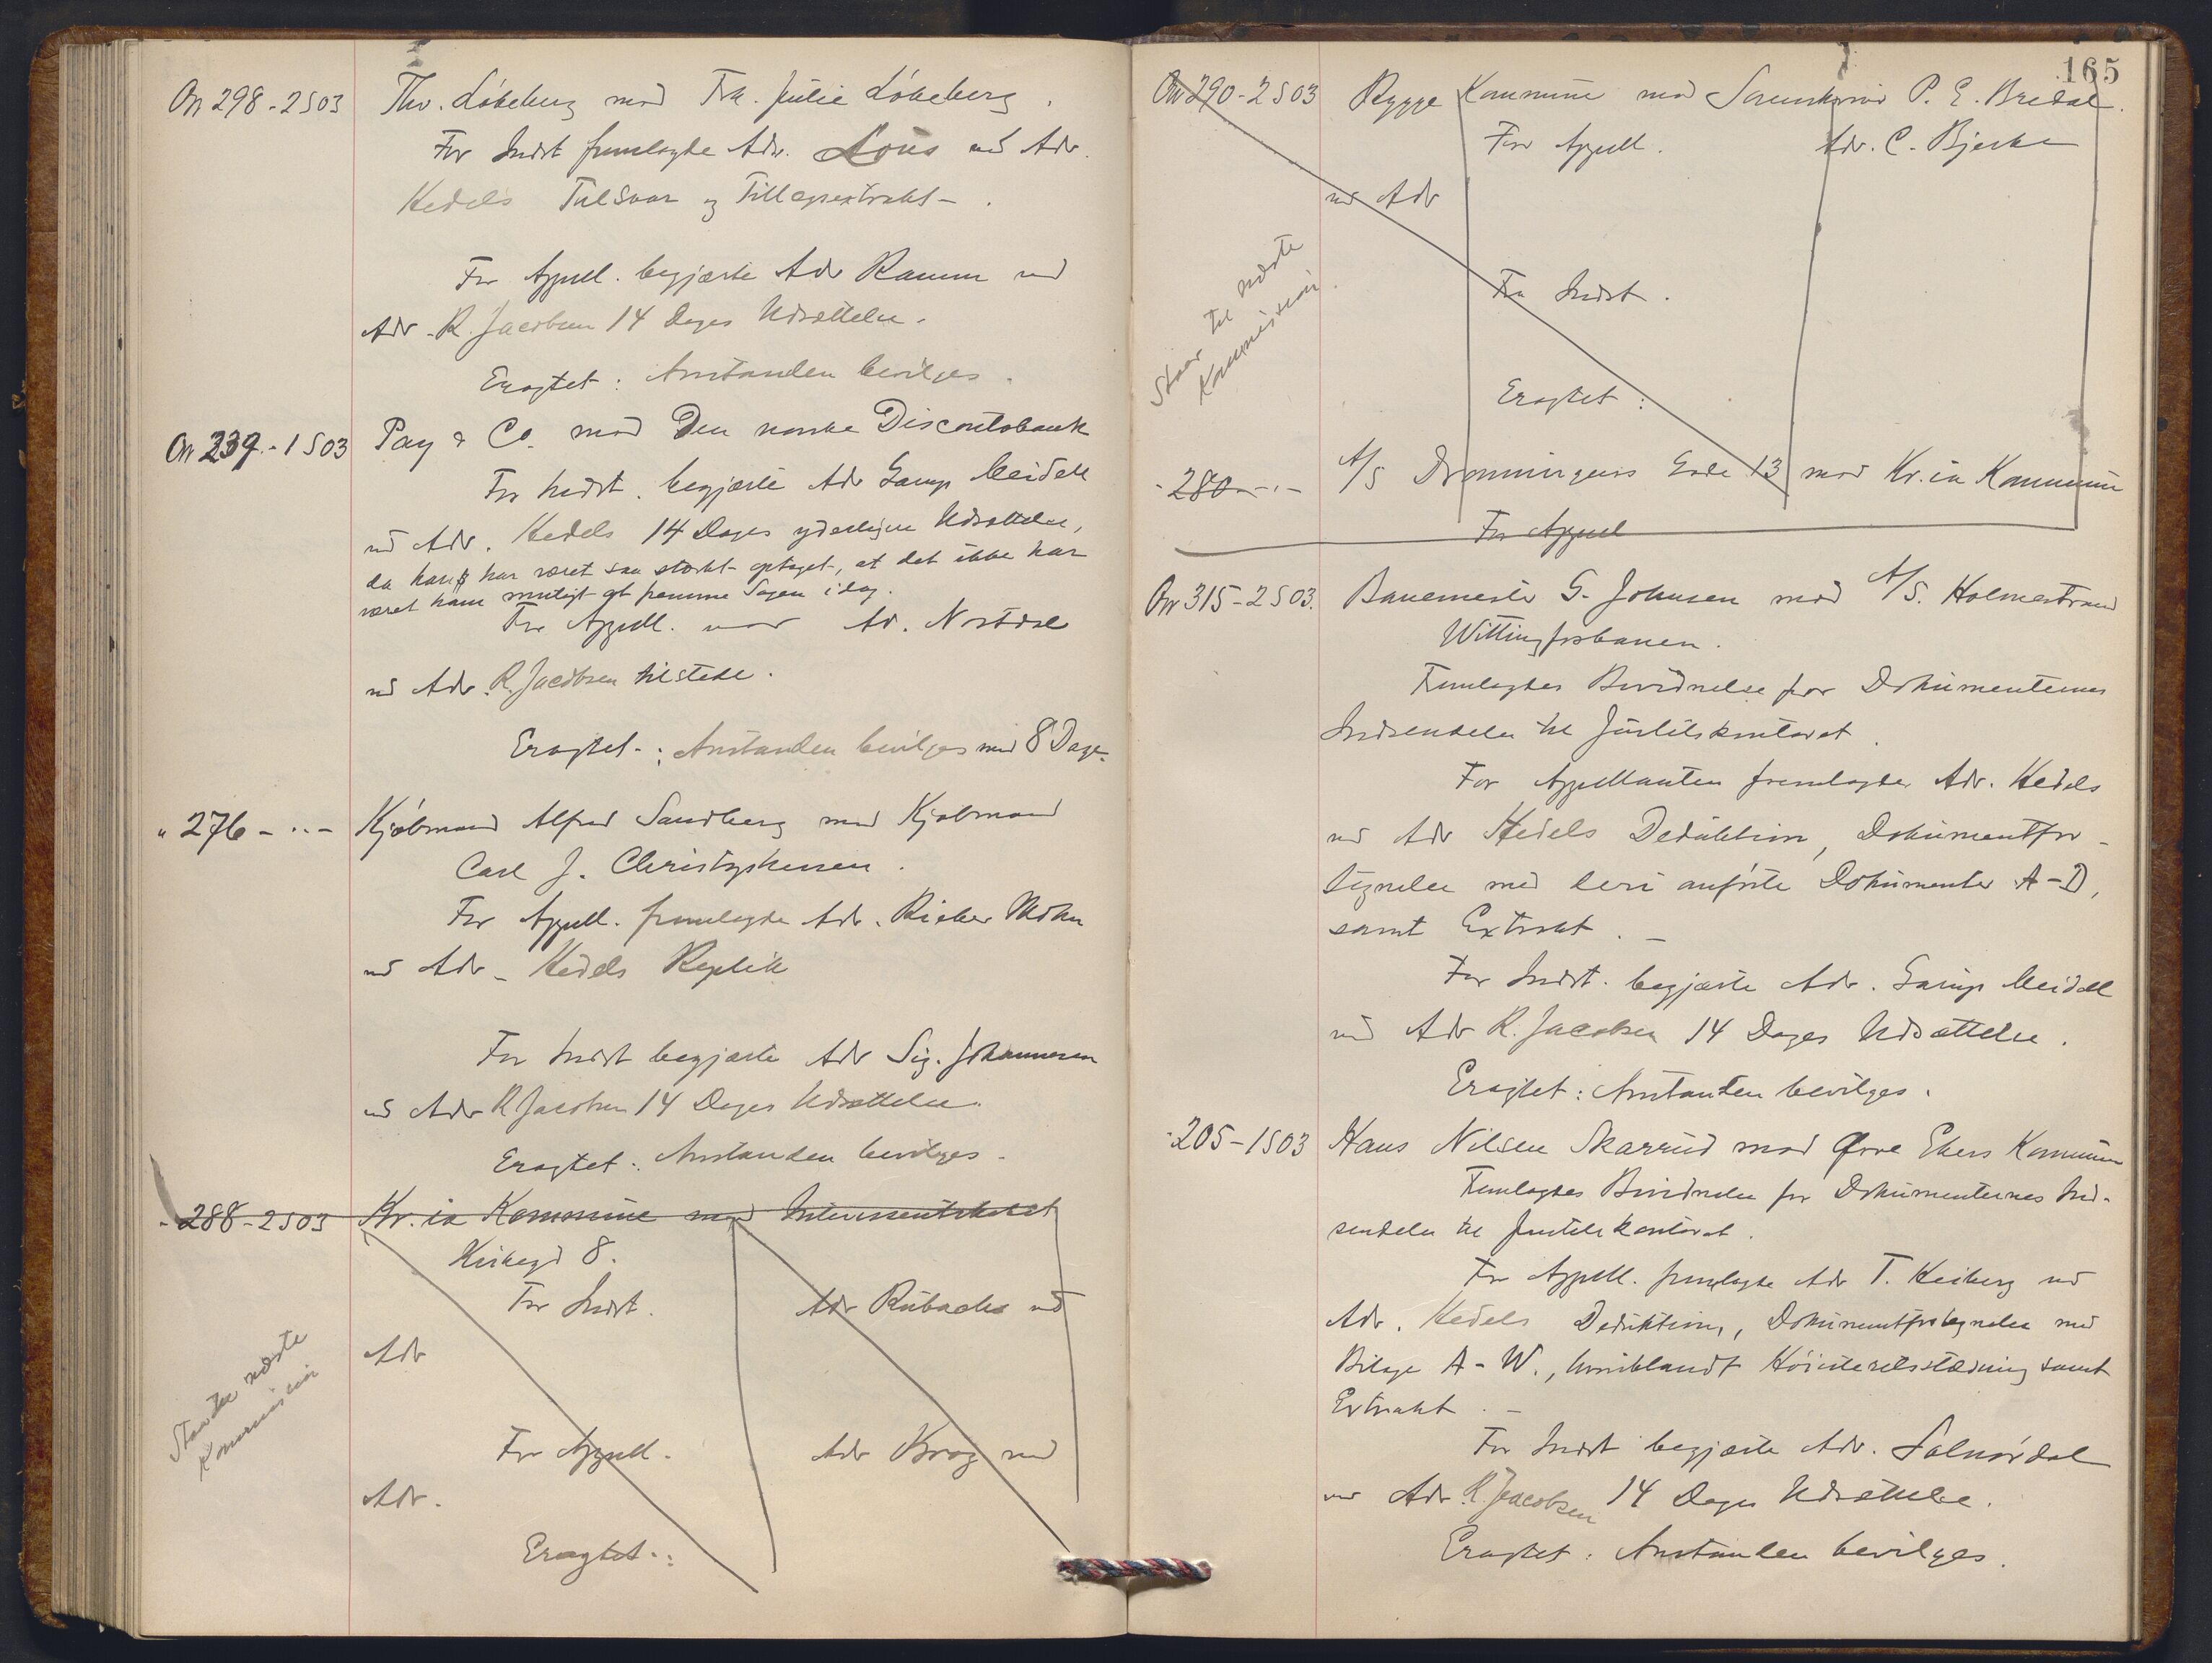 On 298-2S03 Thv. Løkeberg mod Frk. Julie Løkeberg.
For Indst fremlagde Adv. Lous ved Adv.
Hedels Tilsvar og Tillægsextrakt - .
For Appell. begjærte Adv Ramm ved
Adv. R. Jacobsen 14 Dages Udsættelse.
Eragtet: Anstanden bevilges.
On 239-1S03 Pay & Co. mod Den norske Discontobank
For Indst. begjærte Adv Garup Meidell
ved Adv. Hedels 14 Dages yderligere Udsættelse,
da han har været saa stærkt optaget, at det ikke har
været ham muligt at fremme Sagen idag.
For Appell. var Ad. Nordal
ved Adv. R. Jacobsen tilstede.
Eragtet: Anstanden bevilges med 8 Dage.
" 276 - " - Kjøbmand Alfred Sandberg mod Kjøbmand
Carl J. Christophersen.
For Appell. fremlagde Adv. Rieber Mohn
ved Adv. Hedels Replik
For Indst begjærte Adv Sig. Johannesen
ved Adv R Jacobsen 14 Dages Udsættelse.
Eragtet: Anstanden bevilges.
- 288-2S03 Kr.ia Kommune mod Interessentskabet
Kirkegd 8.
For Indst. Adv Rubach ved
Adv
Staar til næste
Kommission
For Appell. Adv Krog ved
Adv.
Eragtet:
165
On 290-2S03 Rygge Kommune mod P. E. Bredal.
For Appell. Adv. C. Bjerke
ved Adv
Staar til næste
Kommission
For Indst.
Eragtet:
- 280 - " - A/S Dronningens Gade 13 mod Kr.ia Kommune
For Appell
On 315-2S03. Banemester G. Johnsen mod A/S. Holmestrand
Wittingfosbanen.
Fremlagdes Bevidnelse for Dokumenternes
Indsendelse til Justitskontoret.
For Appellanten fremlagde Adv. Hedels
ved Adv Hedels Deduktion, Dokumentfor-
tegnelse med deri anførte Dokumenter A-D,
samt Extrakt. -
For Indst. begjærte Adv. Garup Meidell
ved Adv R. Jacobsen 14 Dages Udsættelse.
Eragtet: Anstanden bevilges.
- 205-1S03 Hans Nilsen Skarrud mod Øvre Ekers Kommune
Fremlagdes Bevidnelse for Dokumenternes Ind-
sendelse til Justitskontoret.
For Appell. fremlagde Adv T. Heiberg ved
Adv. Hedels Deduktion, Dokumentfortegnelse med
Bilage A-W., hvoriblandt Høiesteretsstævning samt
Extrakt. -
For Indst begjærte Adv. Solnørdal
ved Adv. R. Jacobsen 14 Dages Udsættelse.
Eragtet: Anstanden bevilges.